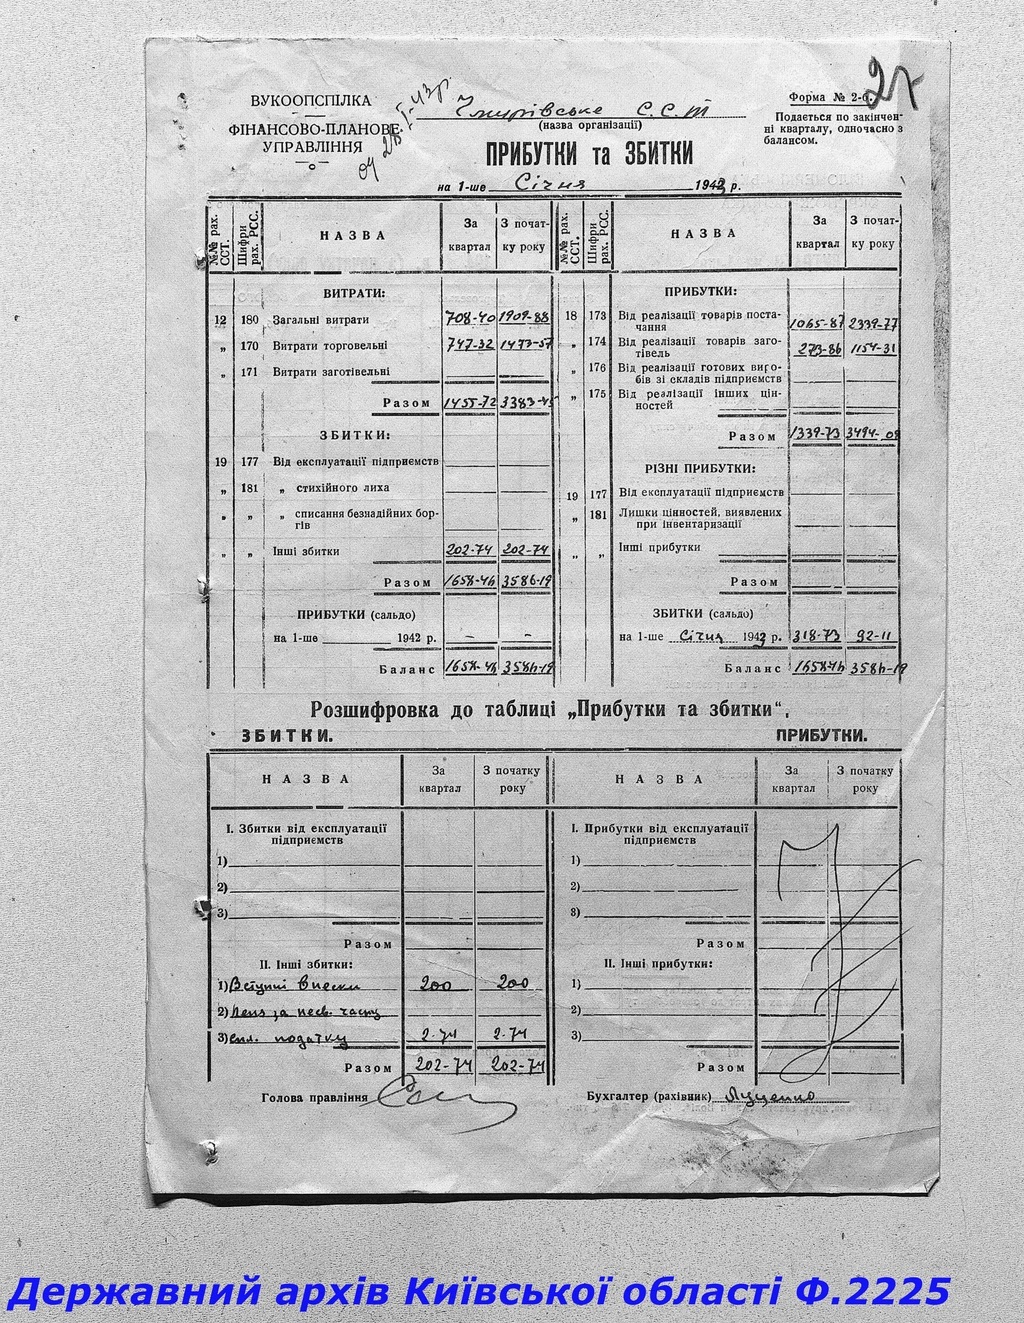 2
ВУКООПСПІЛКА
ФІНАНСОВО-ПЛАНОВЕ
УПРАВЛІННЯ
Форма № 2-б.
Подається по закінчен-
ні кварталу, одночасно з
балансом.
С.С.Т
(назва організації)
ПРИБУТКИ та ЗБИТКИ
на 1-ше Січня 1943 р.
№№ рах. ССТ. Шифри рах. РСС. НАЗВА За квартал З почат-ку року №№ рах. ССТ. Шифри рах. РСС. НАЗВА За квартал З почат-ку року
ВИТРАТИ:
12 180 Загальні витрати 708-40 1909-88
„ 170 Витрати торговельні 747-32 1473-57
„ 171 Витрати заготівельні
Разом 1455-72 3383-45
ЗБИТКИ:
19 177 Від експлуатації підприємств
„ 181 „ стихійного лиха
„ „ „ списання безнадійних бор-
гів
„ „ Інші збитки 202-74 202-74
Разом 1658-46 3586-19
ПРИБУТКИ (сальдо)
на 1-ше 1942 р. – –
Баланс 1658-46 3586-19
ПРИБУТКИ:
18 173 Від реалізації товарів поста-
чання 1065-87 2339-77
„ 174 Від реалізації товарів заго-
тівель 273-86 1154-31
„ 176 Від реалізації готових виро-
бів зі складів підприємств
„ 175 Від реалізації інших цін-
ностей
Разом 1339-73 3494-08
РІЗНІ ПРИБУТКИ:
19 177 Від експлуатації підприємств
„ 181 Лишки цінностей, виявлених
при інвентаризації
„ „ Інші прибутки
Разом
ЗБИТКИ (сальдо)
на 1-ше Січня 1943 р. 318-73 92-11
Баланс 1658-46 3586-19
Розшифровка до таблиці „Прибутки та збитки“.
ЗБИТКИ. ПРИБУТКИ.
НАЗВА За квартал З початку року НАЗВА За квартал З початку року
I. Збитки від експлуатації
підприємств
1)
2)
3)
Разом
II. Інші збитки:
1) Вступні внески 200 200
2) Пеня за несв. часту
3) спл. податку 2-74 2-74
Разом 202-74 202-74
I. Прибутки від експлуатації
підприємств
1)
2)
3)
Разом
II. Інші прибутки:
1)
2)
3)
Разом
Голова правління
Бухгалтер (рахівник) Луценко
Державний архів Київської області Ф.2225